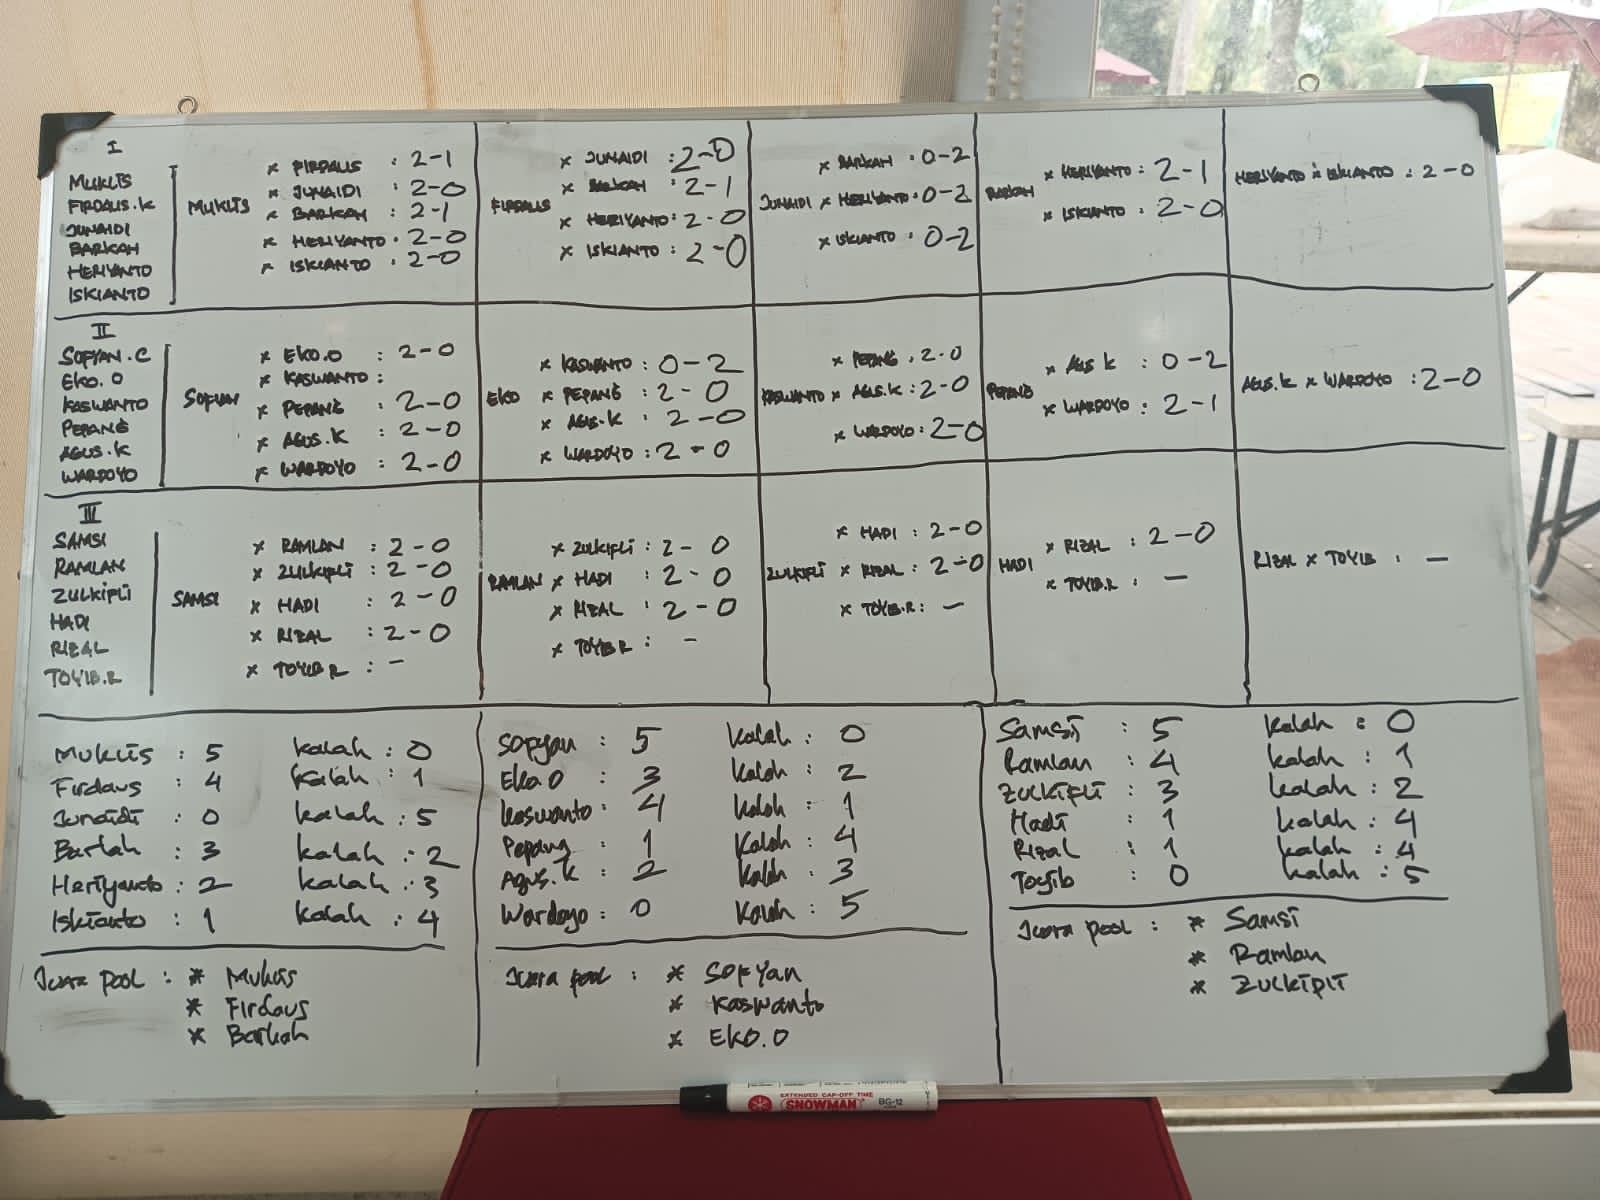 I
MUKLIS
FIRDAUS.K
JUNAIDI
BARKAH
HERIYANTO
ISKIANTO
MUKLIS
x FIRDAUS : 2-1
x JUNAIDI : 2-0
x BARKAH : 2-1
x HERIYANTO : 2-0
x ISKIANTO : 2-0
FIRDAUS
x JUNAIDI : 2-0
x BARKAH : 2-1
x HERIYANTO : 2-0
x ISKIANTO : 2-0
JUNAIDI
x BARKAH : 0-2
x HERIYANTO : 0-2
x ISKIANTO : 0-2
BARKAH
x HERIYANTO : 2-1
x ISKIANTO : 2-0
HERIYANTO x ISKIANTO : 2-0
II
SOFYAN.C
EKO.O
KASWANTO
PEPANG
AGUS.K
WARDOYO
SOFYAN
x EKO.O : 2-0
x KASWANTO :
x PEPANG : 2-0
x AGUS.K : 2-0
x WARDOYO : 2-0
EKO
x KASWANTO : 0-2
x PEPANG : 2-0
x AGUS.K : 2-0
x WARDOYO : 2-0
KASWANTO
x PEPANG : 2-0
x AGUS.K : 2-0
x WARDOYO : 2-0
PEPANG
x AGUS K : 0-2
x WARDOYO : 2-1
AGUS.K x WARDOYO : 2-0
III
SAMSI
RAMLAN
ZULKIFLI
HADI
RIZAL
TOYIB.R
SAMSI
x RAMLAN : 2-0
x ZULKIFLI : 2-0
x HADI : 2-0
x RIZAL : 2-0
x TOYIB R : -
RAMLAN
x ZULKIFLI : 2-0
x HADI : 2-0
x RIZAL : 2-0
x TOYIB R : -
ZULKIFLI
x HADI : 2-0
x RIZAL : 2-0
x TOYIB.R : -
HADI
x RIZAL : 2-0
x TOYIB.R : -
RIZAL x TOYIB : -
Muklis : 5 kalah : 0
Firdaus : 4 kalah : 1
Junaidi : 0 kalah : 5
Barkah : 3 kalah : 2
Heriyanto : 2 kalah : 3
Iskianto : 1 kalah : 4
Juara pool : * Muklis
* Firdaus
* Barkah
Sofyan : 5 kalah : 0
Eko O : 3 kalah : 2
Kaswanto : 4 kalah : 1
Pepang : 1 kalah : 4
Agus.K : 2 kalah : 3
Wardoyo : 0 kalah : 5
Juara pool : * SOFYAN
* Kaswanto
* EKO.O
Samsi : 5 kalah : 0
Ramlan : 4 kalah : 1
Zulkifli : 3 kalah : 2
Hadi : 1 kalah : 4
Rizal : 1 kalah : 4
Toyib : 0 kalah : 5
Juara pool : * Samsi
* Ramlan
* Zulkifli
EXTENDED CAP-OFF TIME
SNOWMAN BG-12